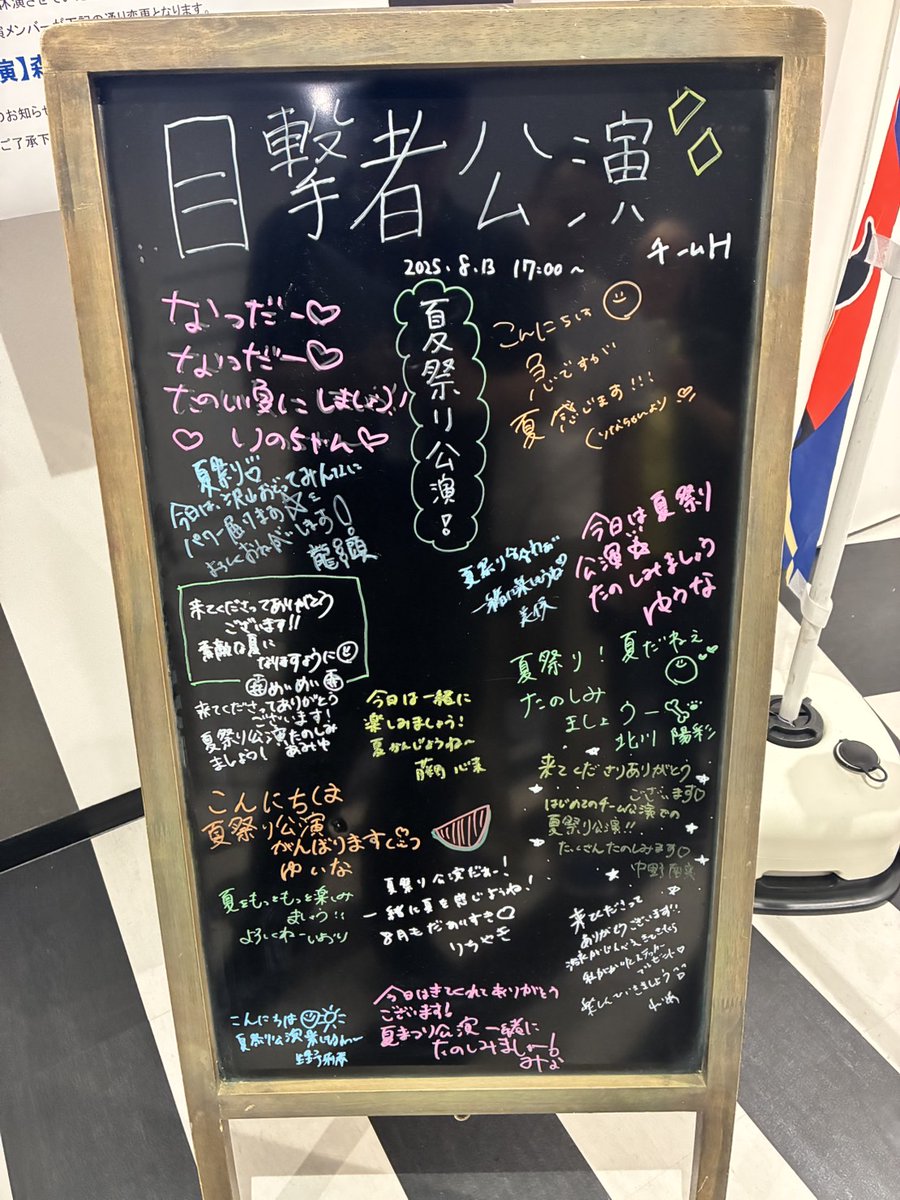 休演させていた
演メンバーが下記の通り変更となります。
演】森
のお知らせ
ご了承下
目撃者公演
チームH
2025.8.13 17:00~
夏祭り公演!
なつだー♡
なつだー♡
たのしい夏にしましょう!
♡りのちゃん♡
こんにちは
急ですが
夏感じます!!!
夏祭り♡
今日は、沢山おどってみんなに
パワー届けます
よろしくおねがいします!
龍頭
今日は夏祭り
公演
たのしみましょう
ゆうな
夏祭り公演
一緒に楽しもうね♡
美咲
来てくださってありがとう
ございます!!
素敵な夏に
なりますように
めいめい
夏祭り!夏だねぇ
たのしみ
ましょうー
北川 陽彩
来てくださってありがとう
ございます!
夏祭り公演たのしみ
ましょうし あみゆ
今日は一緒に
楽しみましょう!
夏かんじようね~
藤野 心菜
来てくださりありがとう
ございます♡
はじめてのチーム公演での
夏祭り公演!!
たくさんたのしみます♡
中野
こんにちは
夏祭り公演
がんばります
ゆいな
夏祭り公演だぁー!
一緒に夏を感じようね!
8月もだぁいすき♡
りちゃき
夏をもっともっと楽しみ
ましょう!!
よろしくねー
来てくださって
ありがとうございます!!
楽しんでいきましょう
こんにちは
夏祭り公演楽しもうねー
今日はきてくれてありがとう
ございます!
夏まつり公演一緒に
たのしみましょー!
みな